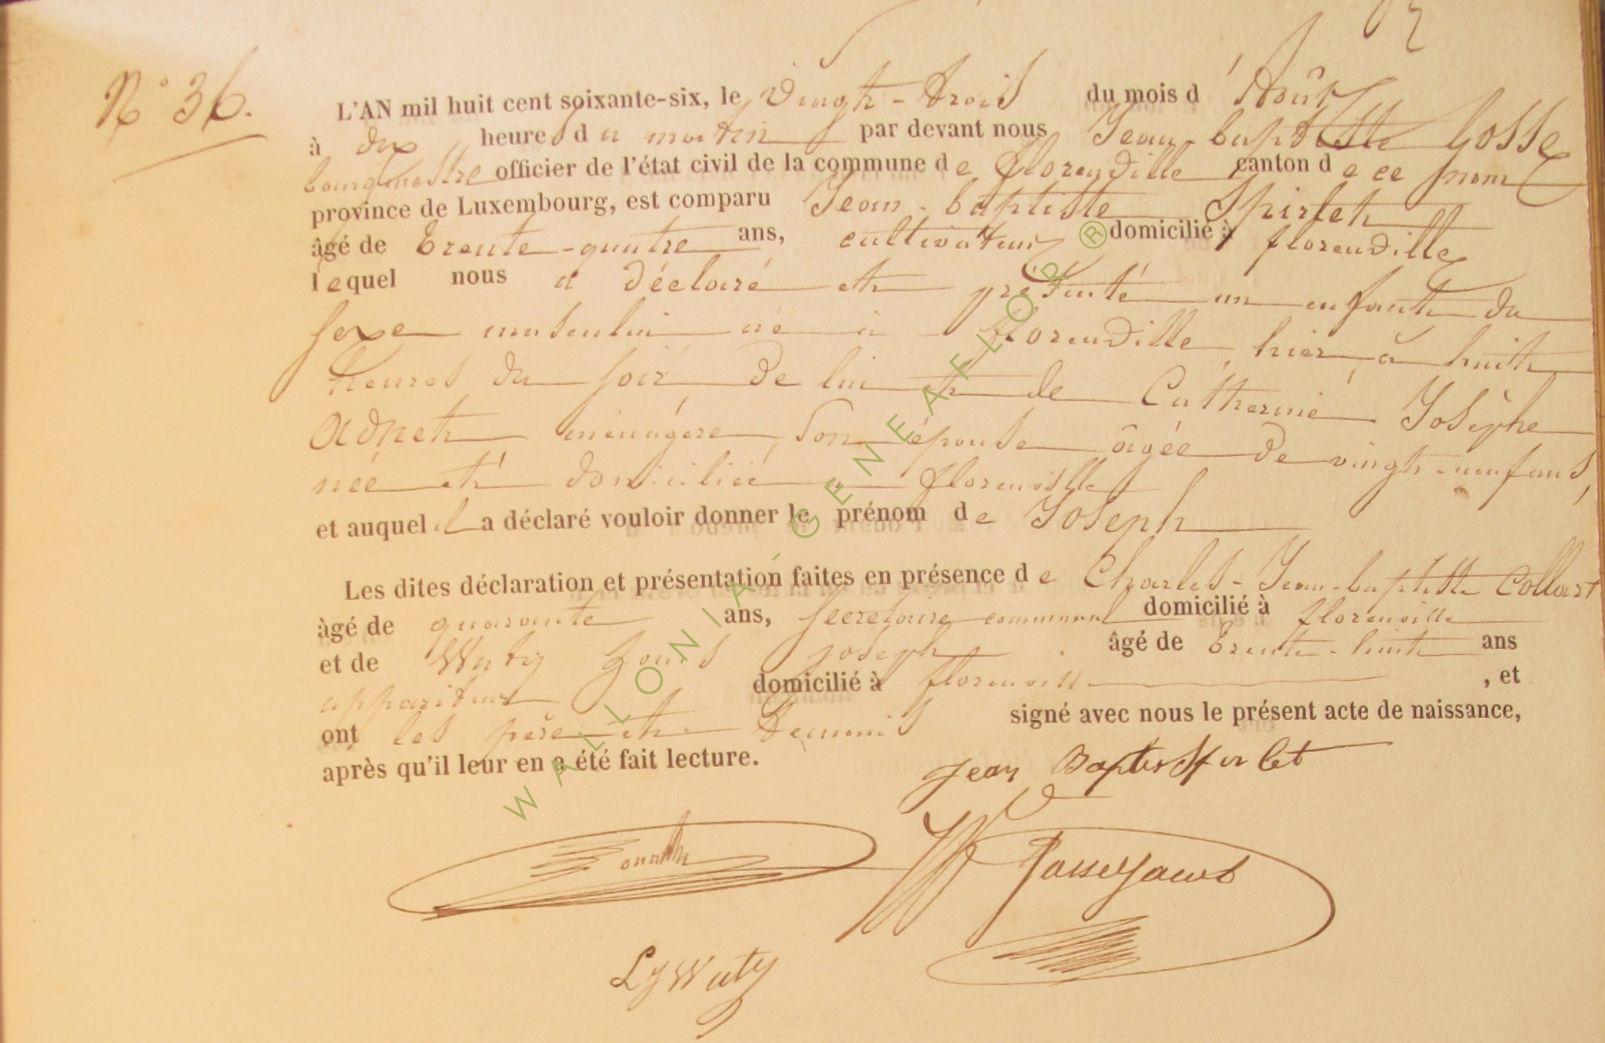 N° 36.
L'AN mil huit cent soixante-six, le vingt-trois du mois d'Août
à dix heures du matin par devant nous Jean-baptiste Gosse
bourgmestre officier de l'état civil de la commune de florenville canton de ce nom
province de Luxembourg, est comparu Jean-baptiste Spirlet
âgé de trente-quatre ans, cultivateur domicilié à florenville
lequel nous a déclaré et présenté un enfant du
sexe masculin né à florenville hier à huit
heures du soir, de lui et de Catherine Josèphe
Adnet ménagère, son épouse âgée de vingt-neuf ans,
née et domiciliée à florenville
et auquel il a déclaré vouloir donner le prénom de Joseph
Les dites déclaration et présentation faites en présence de Charles-Jean-baptiste Collart
âgé de quarante ans, secrétaire communal domicilié à florenville
et de Watiy Louis joseph âgé de trente-huit ans
appariteur domicilié à florenville , et
ont les père et témoins signé avec nous le présent acte de naissance,
après qu'il leur en a été fait lecture.
Jean Baptis Spirlet
LJ Watiy
WALLONIA-GENEAFLOR®